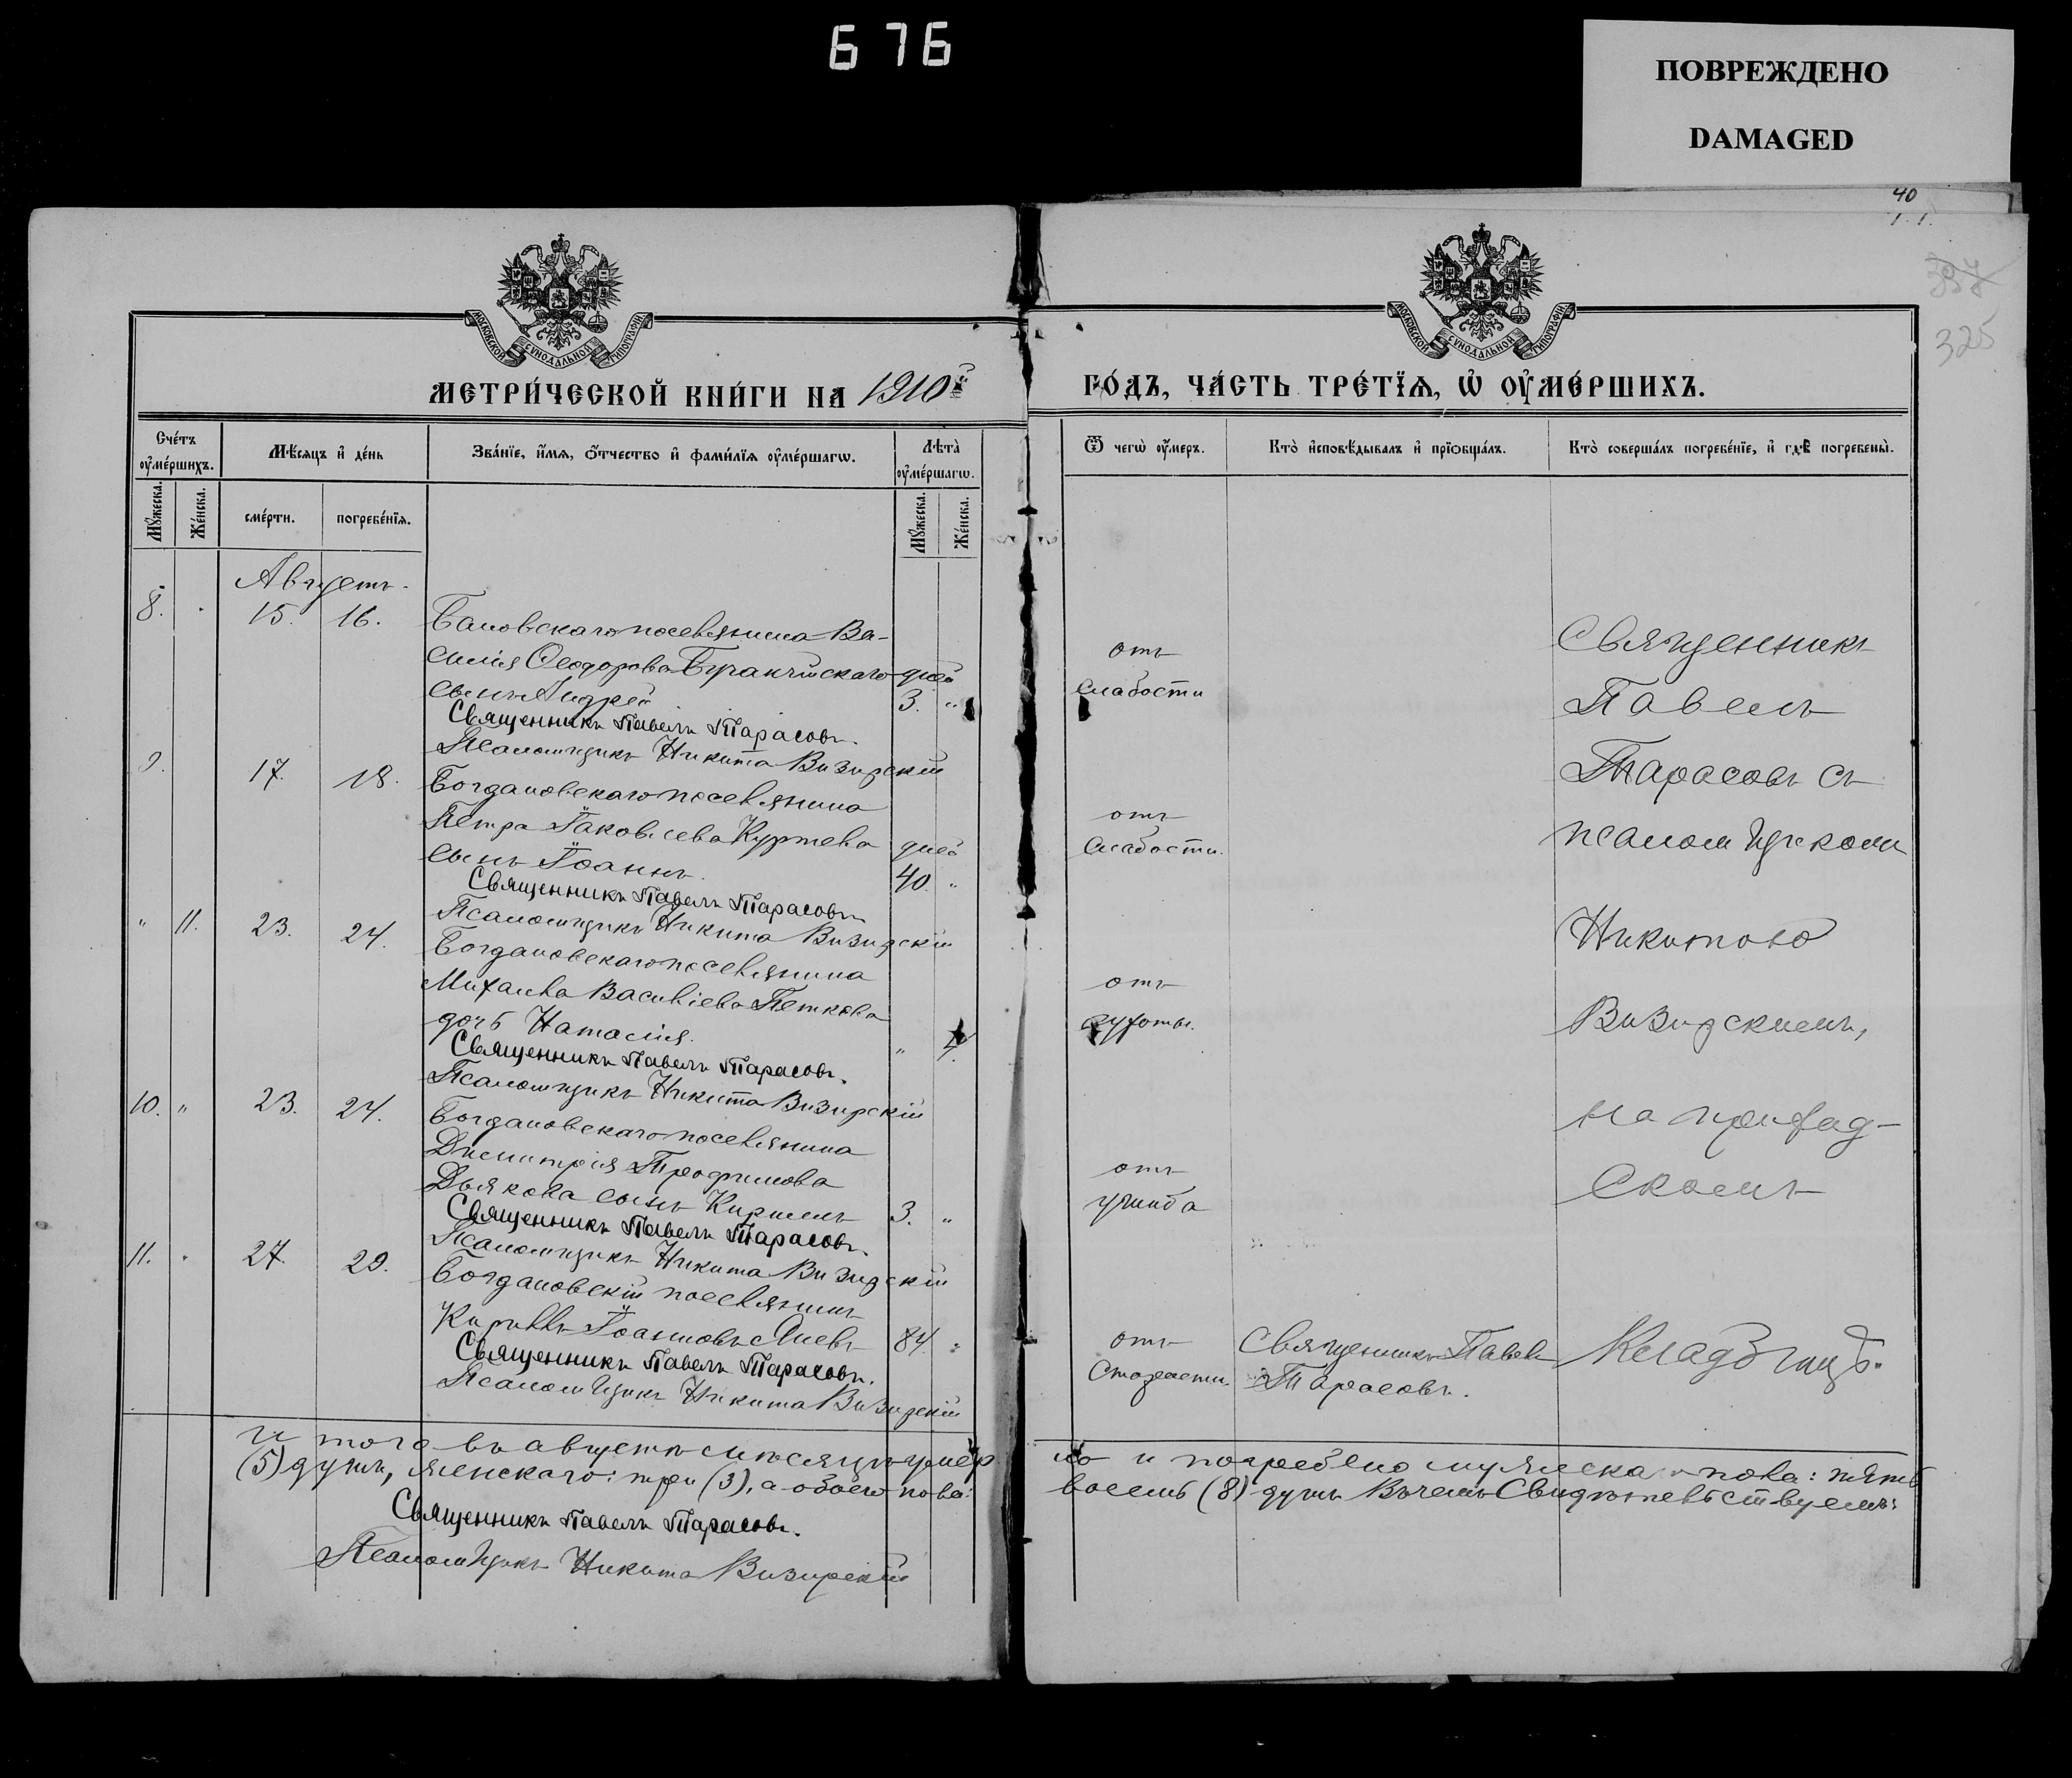 676
ПОВРЕЖДЕНО
DAMAGED
40
325
МОСКОВСКОЙ СѴНОДАЛЬНОЙ ТИПОГРАФІИ
МОСКОВСКОЙ СѴНОДАЛЬНОЙ ТИПОГРАФІИ
МЕТРИ́ЧЕСКОЙ КНИ́ГИ НА 1910й
ГО́ДЪ, ЧА́СТЬ ТРЕ́ТЇѦ, Ѡ҆ ОУ҆МЕ́РШИХЪ.
Счетъ оумершихъ.
Мѣсяцъ и день
Званіе, имя, отчество и фамилія оумершагѡ.
Лѣта оумершагѡ.
Мужеска.
Женска.
смерти.
погребенія.
Мужеска.
Женска.
Ѿ чегѡ оумеръ.
Кто исповѣдывалъ и пріобщалъ.
Кто совершалъ погребеніе, и гдѣ погребены.
Августъ.
8. 15. 16.
поселянина Ва-
силія Ѳеодорова дней
сынъ Андрей 3. "
Священникъ Павелъ Тарасовъ.
Псаломщикъ Никита Визирскій
отъ
слабости
9. 17. 18. Богдановскаго поселянина
Петра Іаковлева Куртева дней
сынъ Іоаннъ. 40. "
Священникъ Павелъ Тарасовъ.
Псаломщикъ Никита Визирскій
отъ
слабости.
" 11. 23. 24. Богдановскаго поселянина
Михаила Василіева Петкова
дочь Наталія. " 4.
Священникъ Павелъ Тарасовъ.
Псаломщикъ Никита Визирскій
отъ
сухоты.
10. " 23. 24. Богдановскаго поселянина
Димитрія Трофимова
Дьякова сынъ Кириллъ 3. "
Священникъ Павелъ Тарасовъ.
Псаломщикъ Никита Визирскій
отъ
ушиба
11. 27. 29. Богдановскій поселянинъ
Кириллъ Іоанновъ 84. "
Священникъ Павелъ Тарасовъ.
Псаломщикъ Никита Визирскій
отъ
старости.
Священникъ Павелъ
Тарасовъ.
Священникъ
Павелъ
Тарасовъ съ
псаломщикомъ
Никитою
Визирскимъ,
на приход-
скомъ
кладбищѣ.
Итого въ августѣ мѣсяцѣ умер
ло и погребено мужеска пола: пять
(5) душъ, женскаго: три (3), а обоего пола:
восемь (8) душъ В чемъ Свидѣтельствуемъ:
Священникъ Павелъ Тарасовъ.
Псаломщикъ Никита Визирскій